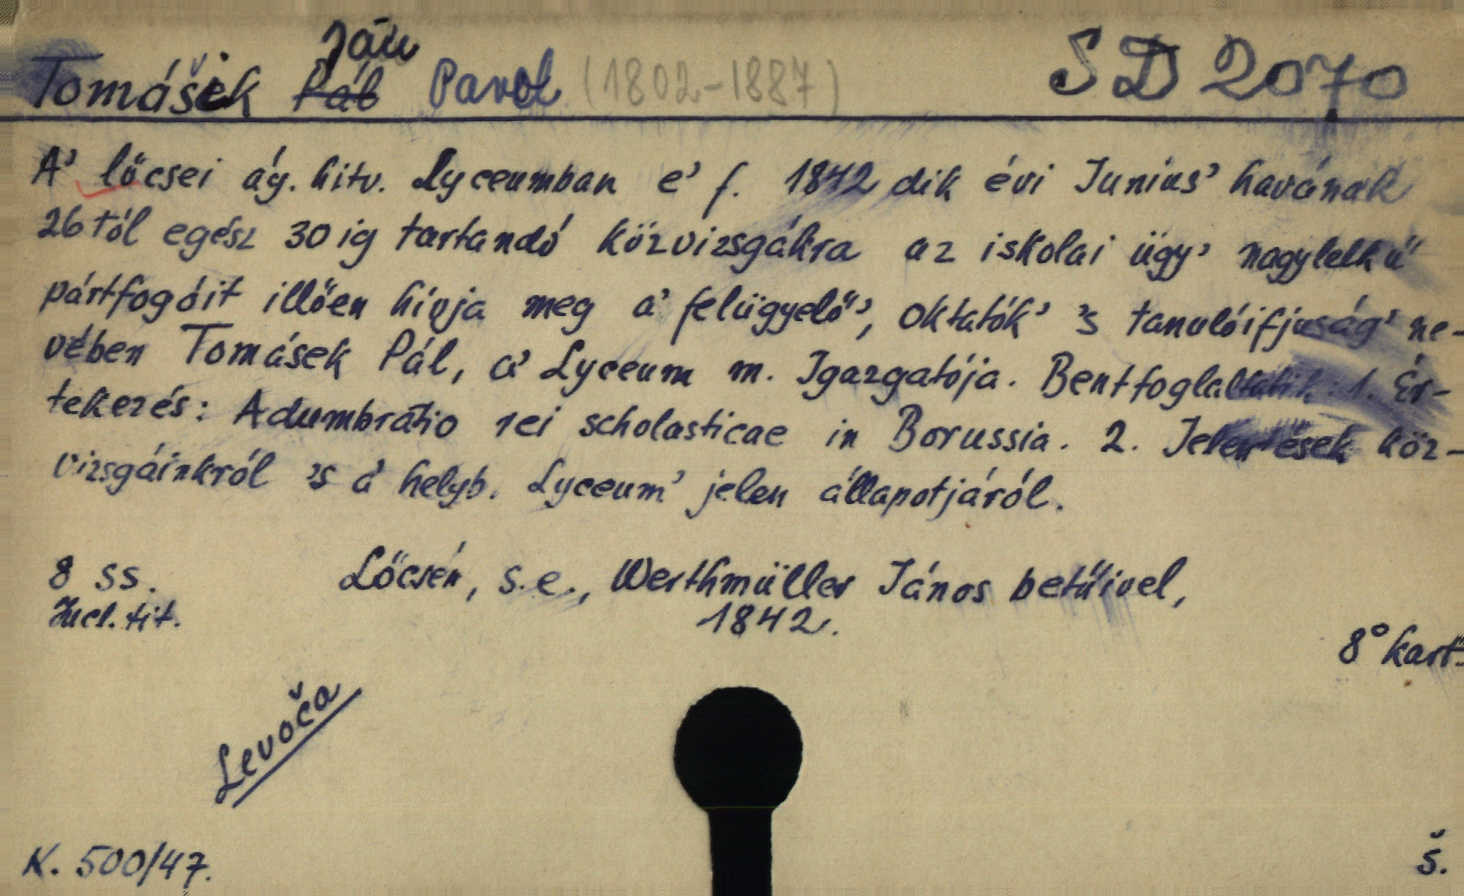 Tomášik Ján Pavol (1802-1887) SD 2070
A' lőcsei ág. hitv. Lyceumban e' f. 1842 dik évi Junius' havának
26 tól egész 30 ig tartandó közvizsgákra az iskolai ügy' nagylelkű
pártfogóit illően hívja meg a' felügyelő', oktatók' 's tanulóifjuság' ne-
vében Tomásek Pál, a' Lyceum m. Igazgatója. Bentfoglaltatik: 1. Ér-
tekezés: Adumbratio rei scholasticae in Borussia. 2. Jelentések köz-
vizsgáinkról 's a' helyb. Lyceum' jelen állapotjáról.
8 ss. Lőcsén, s.e., Werthmüller János betűivel,
Incl. tit. 1842.
8° kart.
Levoča
K. 500/47. Š.